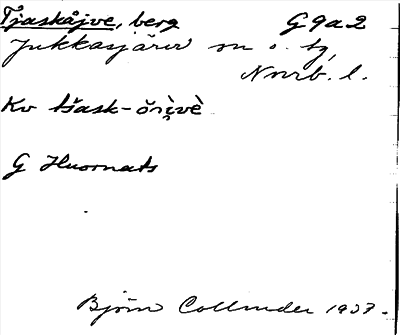 Tjaskåjve, berg G9a2
Jukkasjärvi sn o. tg,
Nnrb. l.
Kv tšask-ŏi̭vè
G Huornats
Björn Collinder 1937.